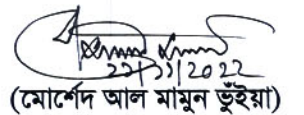 22/11/2022
(মোর্শেদ আল মামুন ভুঁইয়া)